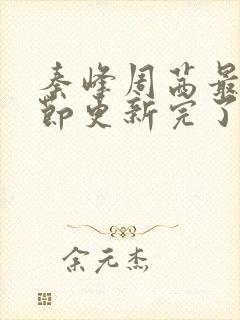 秦峰周茜最
节更新完了
余元杰